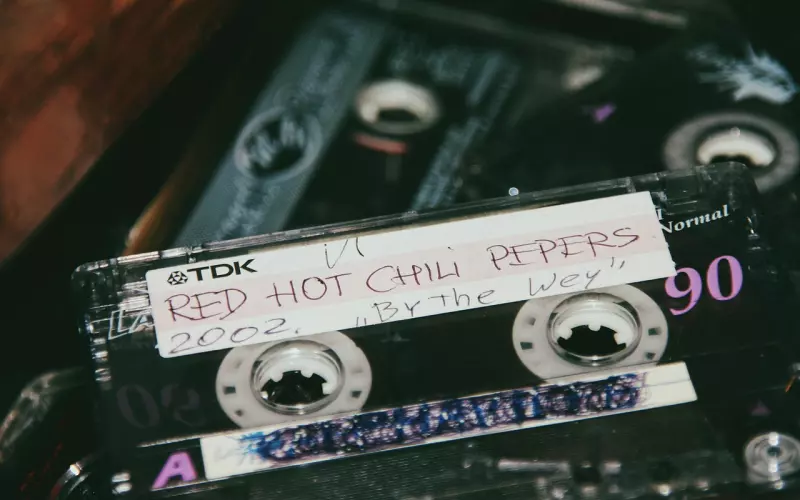 TDK
RED HOT CHILI PEPERS
2002. „By the Wey”
I Normal
90
A